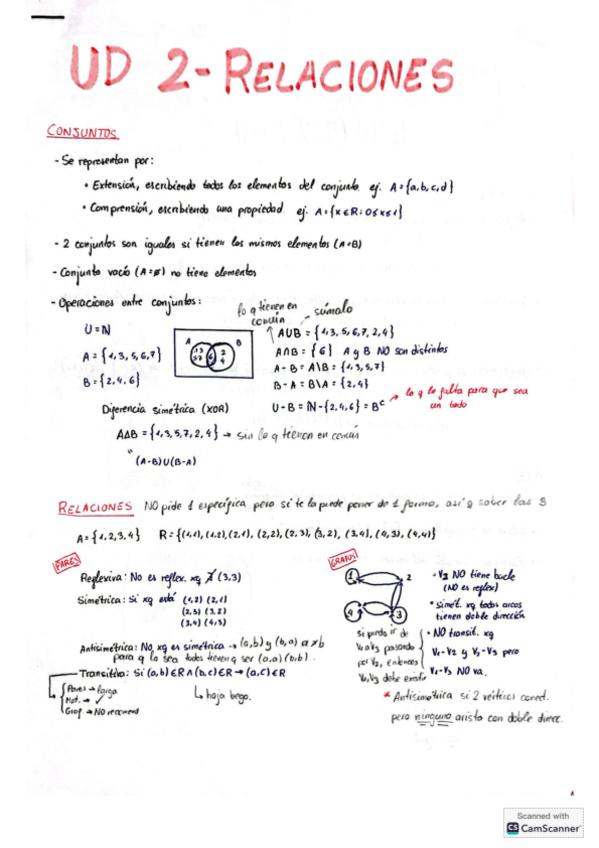 UD 2- RELACIONES
CONJUNTOS
- Se representan por:
• Extensión, escribiendo todos los elementos del conjunto. ej. A={a,b,c,d}
• Comprensión, escribiendo una propiedad ej. A={x∈R: 0≤x≤1}
- 2 conjuntos son iguales si tienen los mismos elementos (A=B)
- Conjunto vacío (A=∅) no tiene elementos
- Operaciones entre conjuntos:
lo q tienen en común
súmalo
U=N
A B
1 3 5 7 6 2 4
A∪B = {1,3,5,6,7,2,4}
A = {1,3,5,6,7}
A∩B = {6} A y B NO son distintos
B = {2,4,6}
A-B = A\B = {1,3,5,7}
B-A = B\A = {2,4}
Diferencia simétrica (XOR)
U-B = N-{2,4,6} = Bᶜ → lo q le falta para que sea un todo
A∆B = {1,3,5,7,2,4} → sin lo q tienen en común
"
(A-B)∪(B-A)
RELACIONES NO pide 1 específica pero si te la puede poner de 1 forma, así q saber las 3
A={1,2,3,4} R={(1,1),(1,2),(2,1),(2,2),(2,3),(3,2),(3,4),(4,3),(4,4)}
PARES
Reflexiva: No es reflex. xq ∄ (3,3)
Simétrica: Sí xq está (1,2) (2,1)
(2,3) (3,2)
(3,4) (4,3)
Antisimétrica: No, xq es simétrica → (a,b) y (b,a) a≠b
para q lo sea todos tienen q ser (a,a) (b,b)..
Transitiva: Si (a,b)∈R ∧ (b,c)∈R → (a,c)∈R
Pares → Larga
Mat. → ✓
Graf → NO recomend
↳ hoja bego.
GRAFOS
1 2
4 3
• V3 NO tiene bucle
(NO es reflex)
• Simét. xq todos arcos
tienen doble dirección
si puedo ir de
V1 a V3 pasando
por V2, entonces
V1V3 debe existir
• NO transit. xq
V1-V2 y V2-V3 pero
V1-V3 NO va.
* Antisimétrica si 2 vértices conect.
pero ninguna arista con doble direcc.
1
Scanned with
CS CamScanner